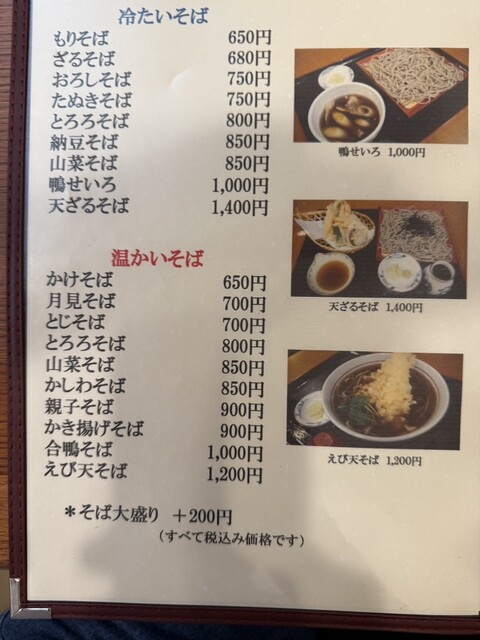 冷たいそば
もりそば 650円
ざるそば 680円
おろしそば 750円
たぬきそば 750円
とろろそば 800円
納豆そば 850円
山菜そば 850円
鴨せいろ 1,000円
天ざるそば 1,400円
鴨せいろ 1,000円
天ざるそば 1,400円
温かいそば
かけそば 650円
月見そば 700円
とじそば 700円
とろろそば 800円
山菜そば 850円
かしわそば 850円
親子そば 900円
かき揚げそば 900円
合鴨そば 1,000円
えび天そば 1,200円
えび天そば 1,200円
＊そば大盛り ＋200円
（すべて税込み価格です）